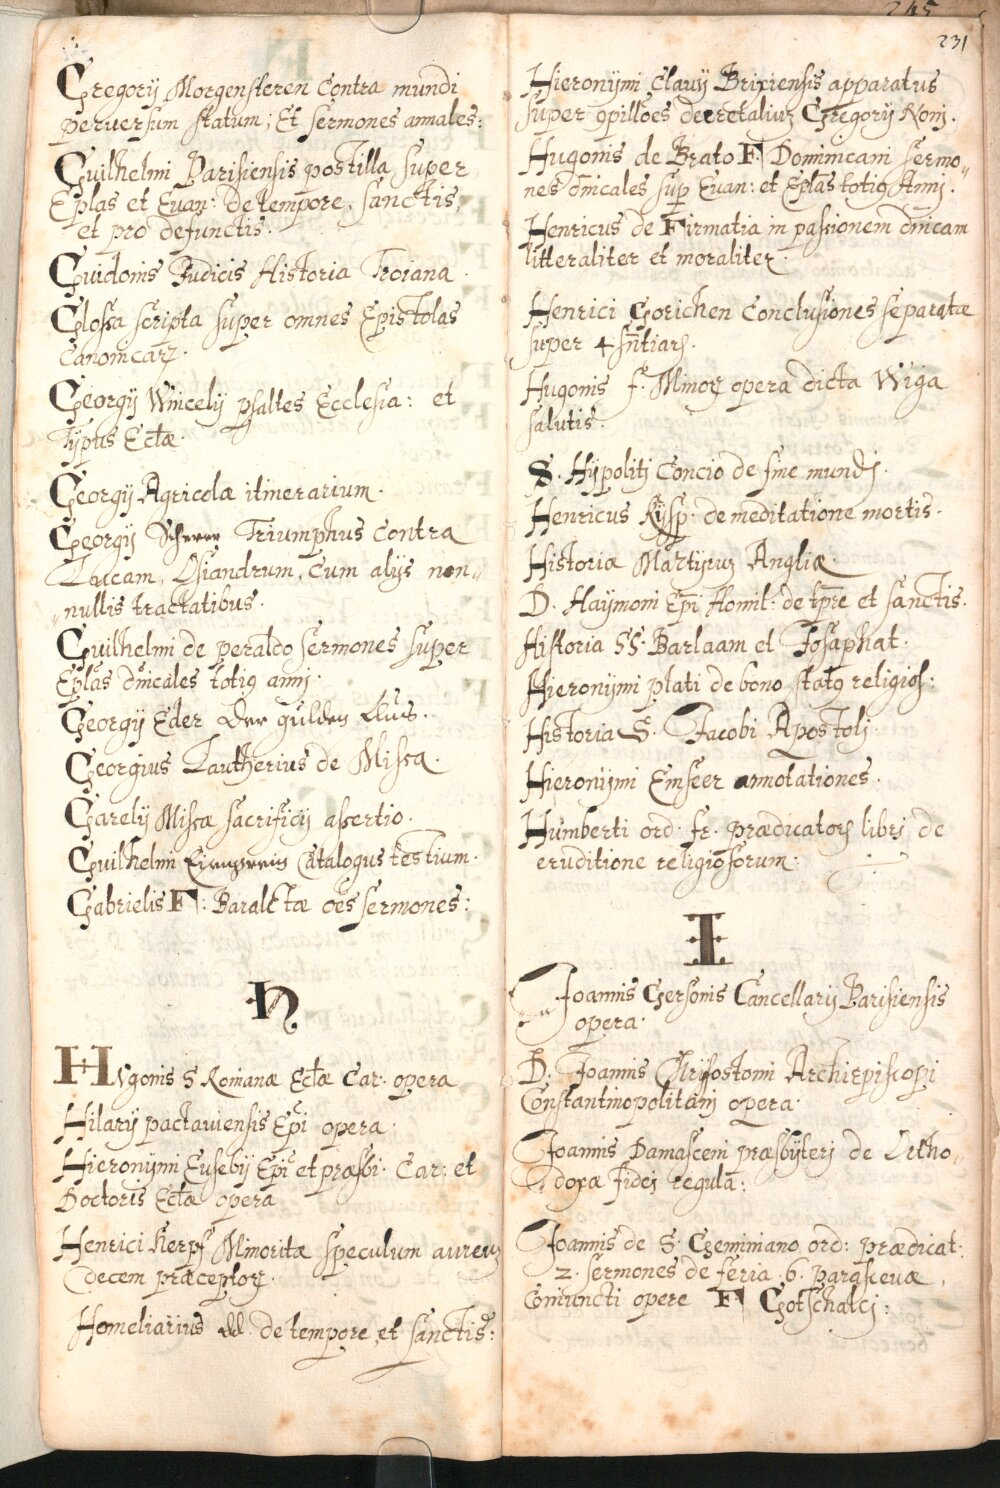 Gregorij Morgensteren Contra mundi
perversum statum; Et sermones annales:
Guilhelmi Parisiensis postilla super
Eplas et Euan: de tempore, sanctis,
et pro defunctis.
Guidonis Judicis Historia Troiana.
Glossa scripta super omnes Epistolas
Canonicarz.
Georgij Wincelij psaltes Ecclesia: et
Typus Ectæ.
Georgij Agricolæ itinerarium.
Georgij Scherer Triumphus Contra
Lucam, Osiandrum, Cum alijs non„
„nullis tractatibus.
Guilhelmi de peraldo sermones super
Eplas dnicales totiq anni.
Georgij Eder Der gulden Flus.
Georgius Lautherius de Missa.
Garetij Missæ sacrificij assertio.
Guilhelmi Eisengrein Catalogus testium.
Gabrielis F: Baralctæ oēs sermones:
H
Hugonis S Romanæ Ectæ Car. opera
Hilarij pactauiensis Epi opera.
Hieronijmi Eusebij Epi et præsbi. Car: et
Doctoris Ectæ opera
Henrici Herpf Minoritæ speculum aureuz
decem præceptorz.
Homeliarius dd. de tempore et sanctis:
231
Hieronijmi Clavij Brixiensis apparatus
super 9pilloes decretaliuz Gregorij Noni.
Hugonis de Brato F. Dominicani sermo„
nes dnicales sup Euan: et Eplas totiq Anni.
Henricus de Firmatia in passionem dnicam
litteraliter et moraliter.
Henrici Gorichen Conclusiones separatæ
super 4 sn̄tiarz.
Hugonis f. Minorz opera dicta Wiga
salutis.
S. Hypolitj Concio de fine mundj.
Henricus Kijsp. de meditatione mortis.
Historia Martyruz Angliæ.
D. Haymoni Epi Homil: de tpre et sanctis.
Historia SS. Barlaam et Josaphat.
Hieronijmi plati de bono statq religios:
Historia S. Jacobi Apostolj.
Hieronijmi Emseer annotationes.
Humberti ord. fr. prædicatorz librj de
eruditione religiosorum.
I
Joannis Gersonis Cancellarij Parisiensis
opera.
D. Joannis Chrijsostomi Archiepiscopi
Constantinopolitanj opera.
Joannis Damasceni præsbyterj de Ortho„
doxæ fidej regula:
Joannis de S. Geminiano ord: prædicat:
2. sermones de feria .6. parasceuæ,
Coniuncti opere F Gotschalcj: